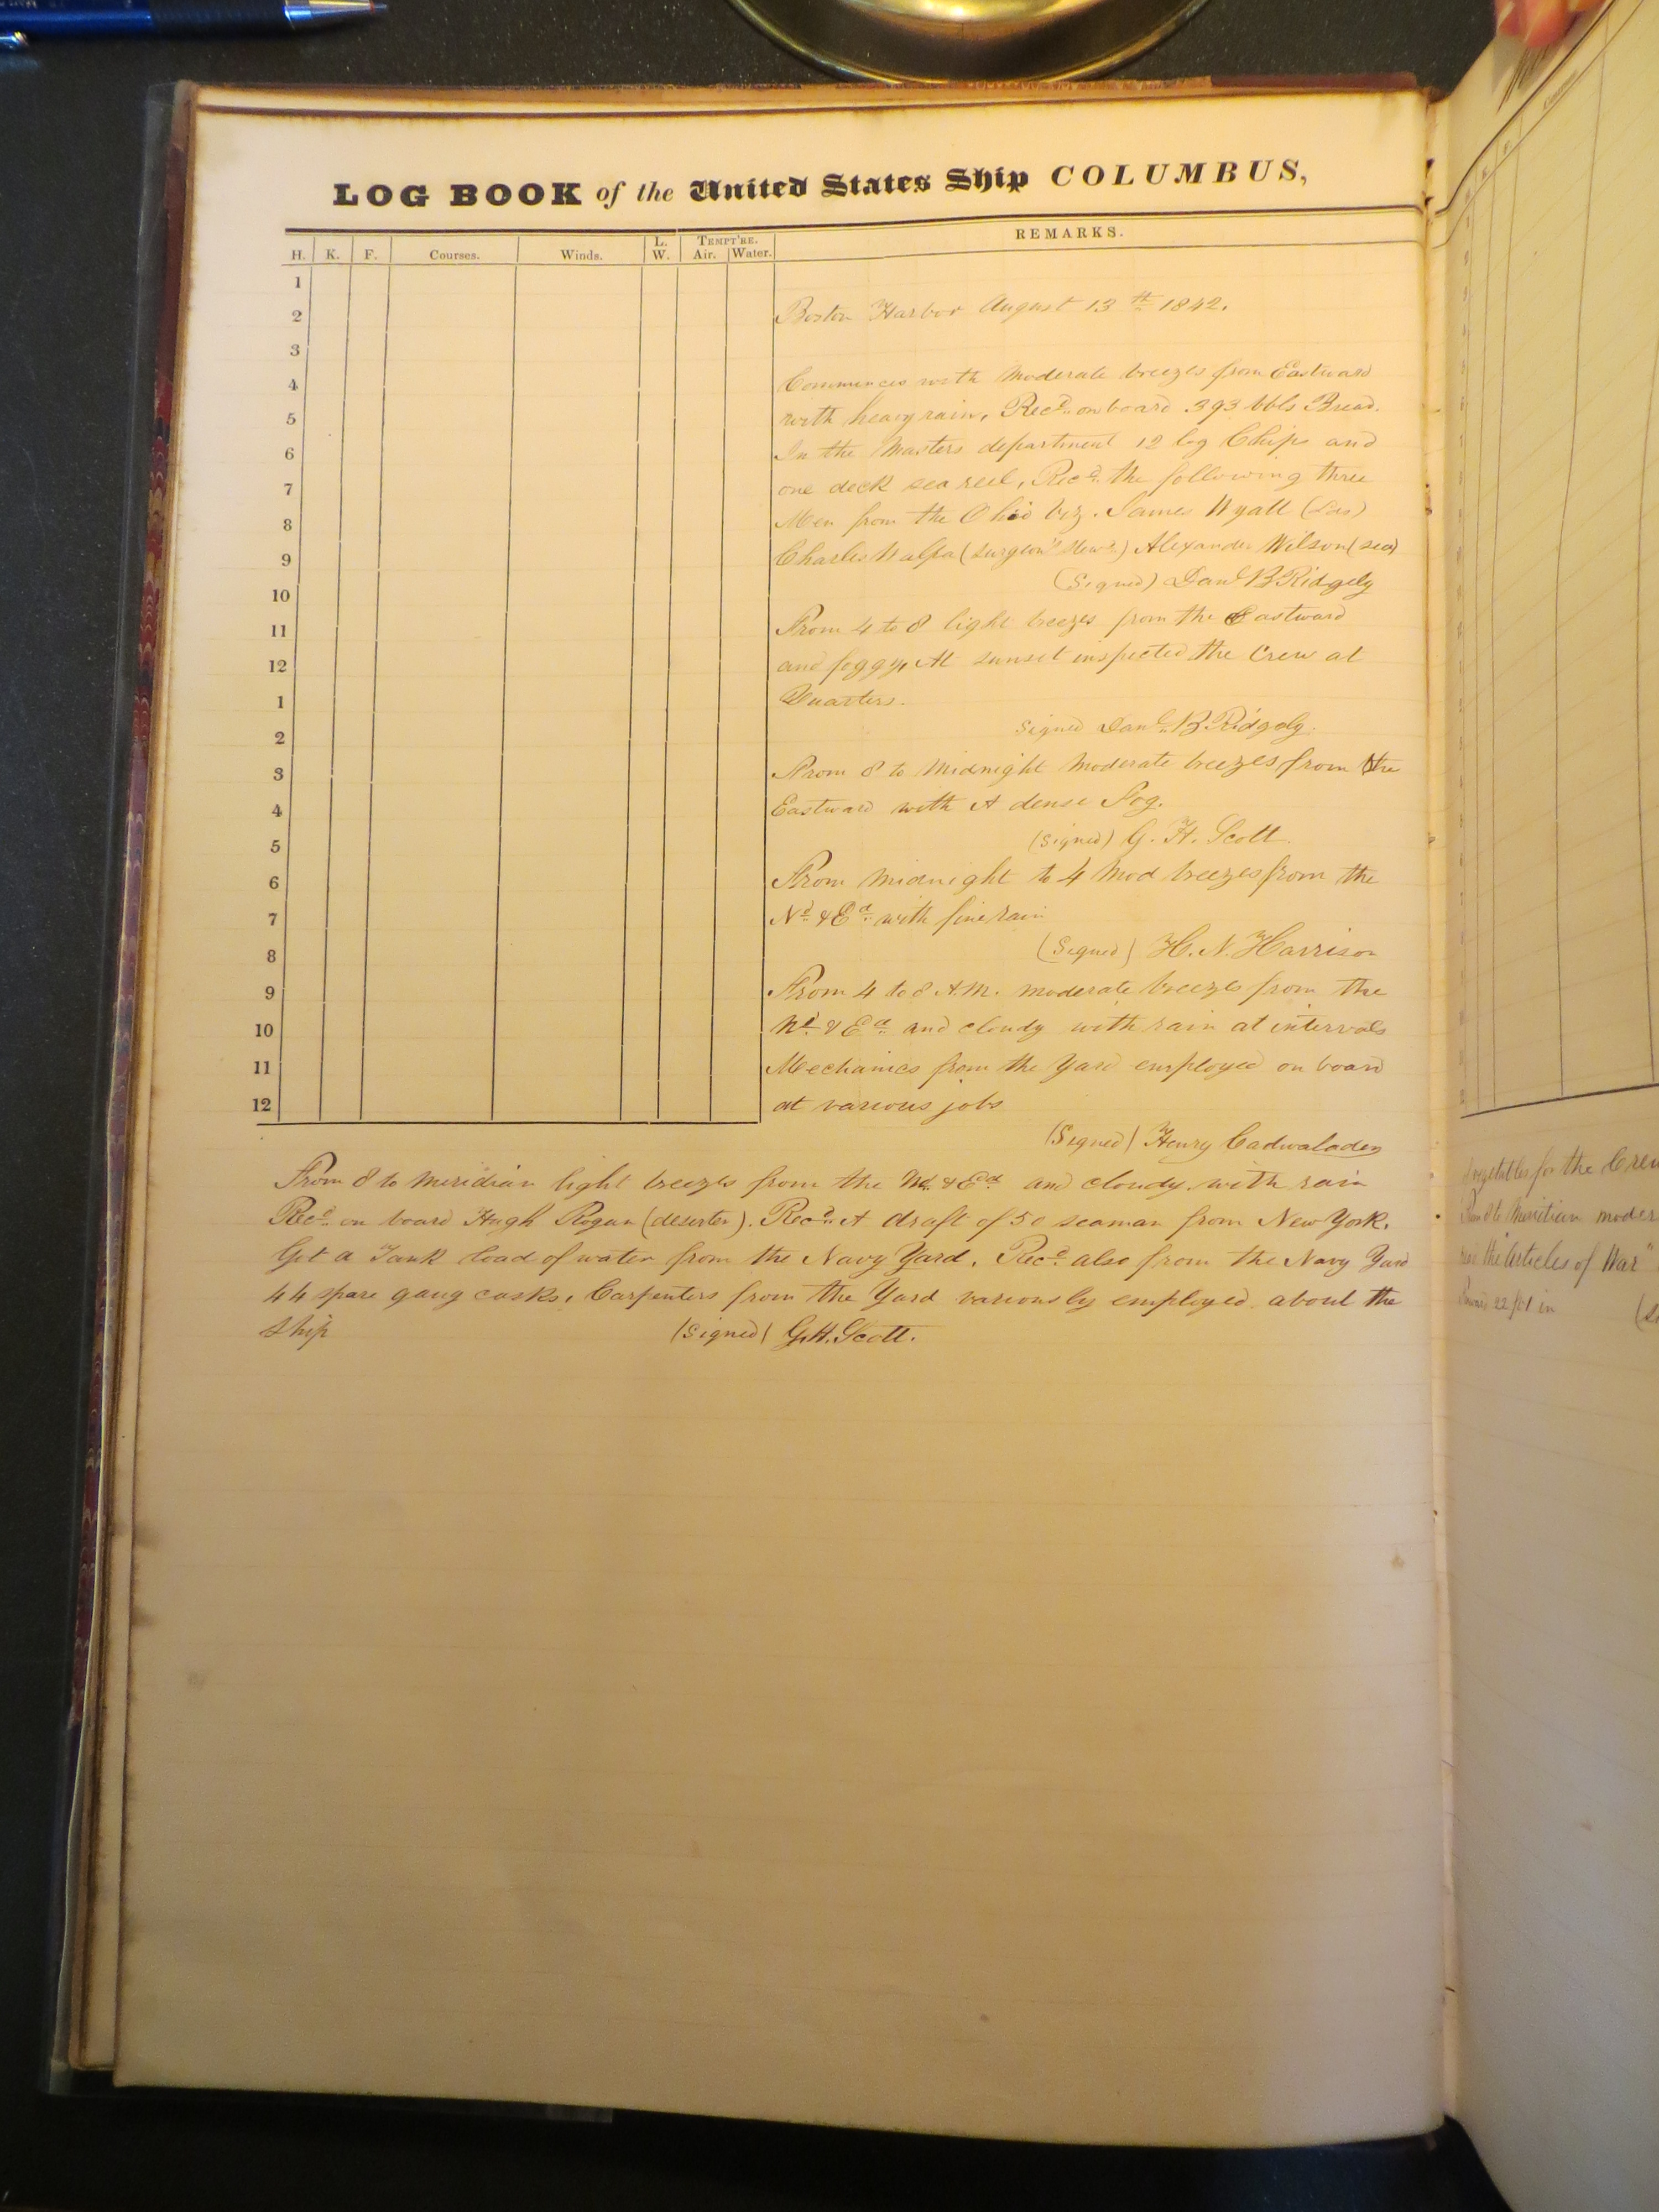 LOG BOOK of the United States Ship COLUMBUS,
H. K. F. Courses. Winds. L. W. TEMPT'RE. Air. Water. REMARKS.
1
2 Boston Harbor August 13th 1842.
3
4 Commences with Moderate breezes from Eastward
5 with heavy rain, Recd. on board 393 bbls Bread.
6 In the Masters department 12 log Chips and
7 one deck sea reel, Recd. the following three
8 Men from the Ohio viz. James Wyatt (Lds)
9 Charles (Surgeon's Stewd.) Alexander Wilson (sea)
10 (Signed) Danl B Ridgely
11 From 4 to 8 light breezes from the Eastward
12 and foggy, At sunset inspected the Crew at
1 Quarters.
2 Signed Danl. B. Ridgely.
3 From 8 to Midnight Moderate breezes from the
4 Eastward with A dense Fog.
5 (Signed) G. H. Scott.
6 From Midnight to 4 Mod breezes from the
7 Nd. & Ed. with fine rain
8 (Signed) H. N. Harrison
9 From 4 to 8 A.M. moderate breezes from the
10 Nd. & Ed. and cloudy with rain at intervals
11 Mechanics from the Yard employed on board
12 at various jobs
(Signed) Henry Cadwalader
From 8 to Meridian light breezes from the Nd. & Ed. and cloudy with rain
Recd. on board Hugh Rogan (deserter). Recd. A draft of 50 seaman from New York.
Got a Tank load of water from the Navy Yard. Recd. also from the Navy Yard
44 spare gang casks. Carpenters from the Yard variously employed about the
Ship (Signed) G.H. Scott.
Vegetables for the Crew
Meridian moder
the "Articles of War"
in